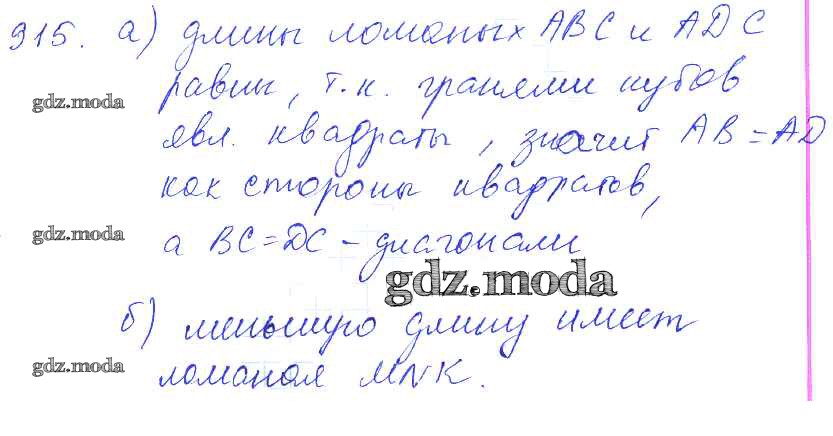 315. а) длины ломаных ABC и ADC
равны, т.к. гранями кубов
gdz.moda
явл. квадраты, значит AB = AD
как стороны квадратов,
gdz.moda
а BC = DC - диагонали
gdz.moda
б) меньшую длину имеет
gdz.moda
ломаная MNK.